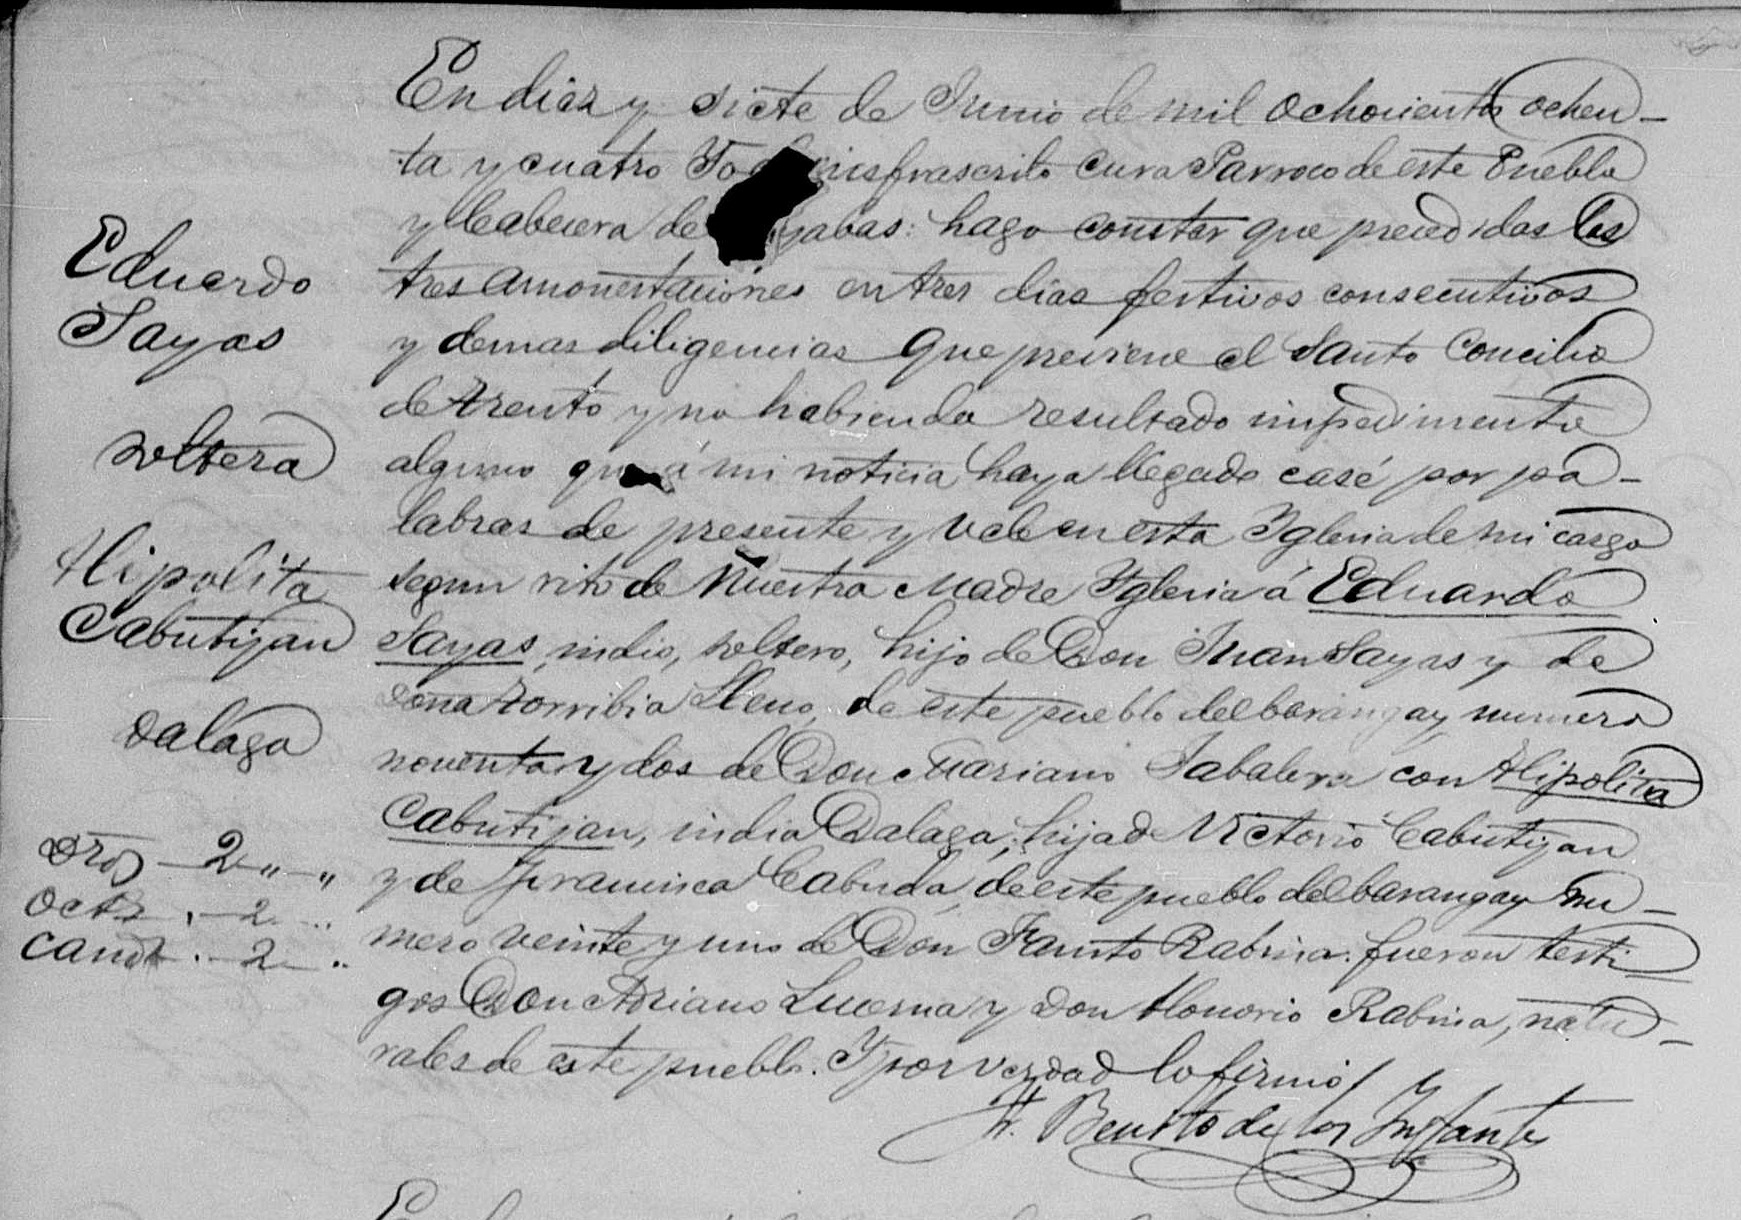 En diez y siete de Junio de mil ochocientos ochen-
ta y cuatro Yo el infrascrito Cura Parroco de este Pueblo
y Cabecera de yabas: hago constar que precedidas las
tres amonestaciones en tres dias festivos consecutivos
y demas diligencias que previene el Santo Concilio
de Trento y no habiendo resultado impedimento
alguno que á mi noticia haya llegado casé por pa-
labras de presente y vele en esta Yglesia de mi cargo
segun rito de Nuestra Madre Yglesia á Eduardo
Sayas, indio, soltero, hijo de Don Juan Sayas y de
Dona Torribia Lleno, de este pueblo del barangay numero
noventa y dos de Don Mariano Jabalera con Hipolita
Cabutijan, india Dalaga, hija de Victorio Cabutijan
y de Francisca Cabuda, de este pueblo del barangay nu-
mero veinte y uno de Don Fausto Rabina. fueron testi-
gos Don Adriano Lucerna y Don Honorio Rabina, natu-
rales de este pueblo. Y por verdad lo firmo
Fr. Benito de los Infantes
Eduardo
Sayas
soltero
Hipolita
Cabutijan
dalaga
Dros 2 " "
Octs . 2 ..
Cant . 2 ..